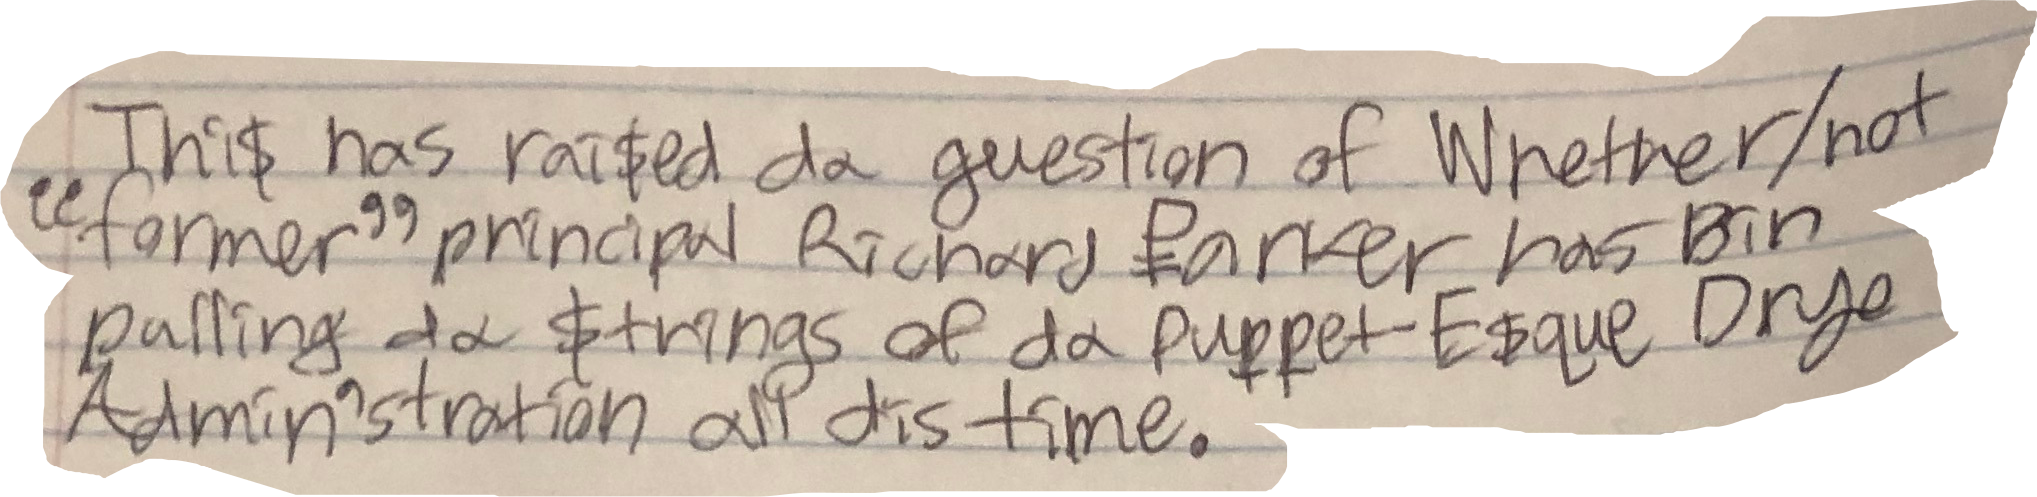 Thi$ has rai$ed da question of Whether/not
“former” principal Richard Parker has Bin
pulling da $trings of da puppet-E$que Drye
Admin'stration all dis time.